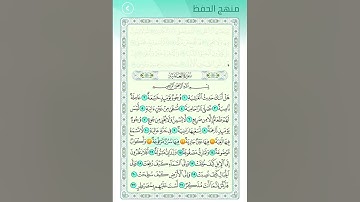 منهج الحفظ
سُورَةُ الغَاشِيَةِ
بِسْمِ ٱللَّهِ ٱلرَّحْمَٰنِ ٱلرَّحِيمِ
هَلْ أَتَىٰكَ حَدِيثُ ٱلْغَٰشِيَةِ ١ وُجُوهٌ يَوْمَئِذٍ خَٰشِعَةٌ ٢ عَامِلَةٌ
نَّاصِبَةٌ ٣ تَصْلَىٰ نَارًا حَامِيَةً ٤ تُسْقَىٰ مِنْ عَيْنٍ ءَانِيَةٍ ٥ لَّيْسَ
لَهُمْ طَعَامٌ إِلَّا مِن ضَرِيعٍ ٦ لَّا يُسْمِنُ وَلَا يُغْنِي مِن جُوعٍ ٧ وُجُوهٌ
يَوْمَئِذٍ نَّاعِمَةٌ ٨ لِّسَعْيِهَا رَاضِيَةٌ ٩ فِي جَنَّةٍ عَالِيَةٍ ١٠ لَّا تَسْمَعُ
فِيهَا لَٰغِيَةً ١١ فِيهَا عَيْنٌ جَارِيَةٌ ١٢ فِيهَا سُرُرٌ مَّرْفُوعَةٌ ١٣ وَأَكْوَابٌ
مَّوْضُوعَةٌ ١٤ وَنَمَارِقُ مَصْفُوفَةٌ ١٥ وَزَرَابِيُّ مَبْثُوثَةٌ ١٦ أَفَلَا يَنظُرُونَ
إِلَى ٱلْإِبِلِ كَيْفَ خُلِقَتْ ١٧ وَإِلَى ٱلسَّمَآءِ كَيْفَ رُفِعَتْ ١٨ وَإِلَى
ٱلْجِبَالِ كَيْفَ نُصِبَتْ ١٩ وَإِلَى ٱلْأَرْضِ كَيْفَ سُطِحَتْ ٢٠
فَذَكِّرْ إِنَّمَآ أَنتَ مُذَكِّرٌ ٢١ لَّسْتَ عَلَيْهِم بِمُصَيْطِرٍ ٢٢